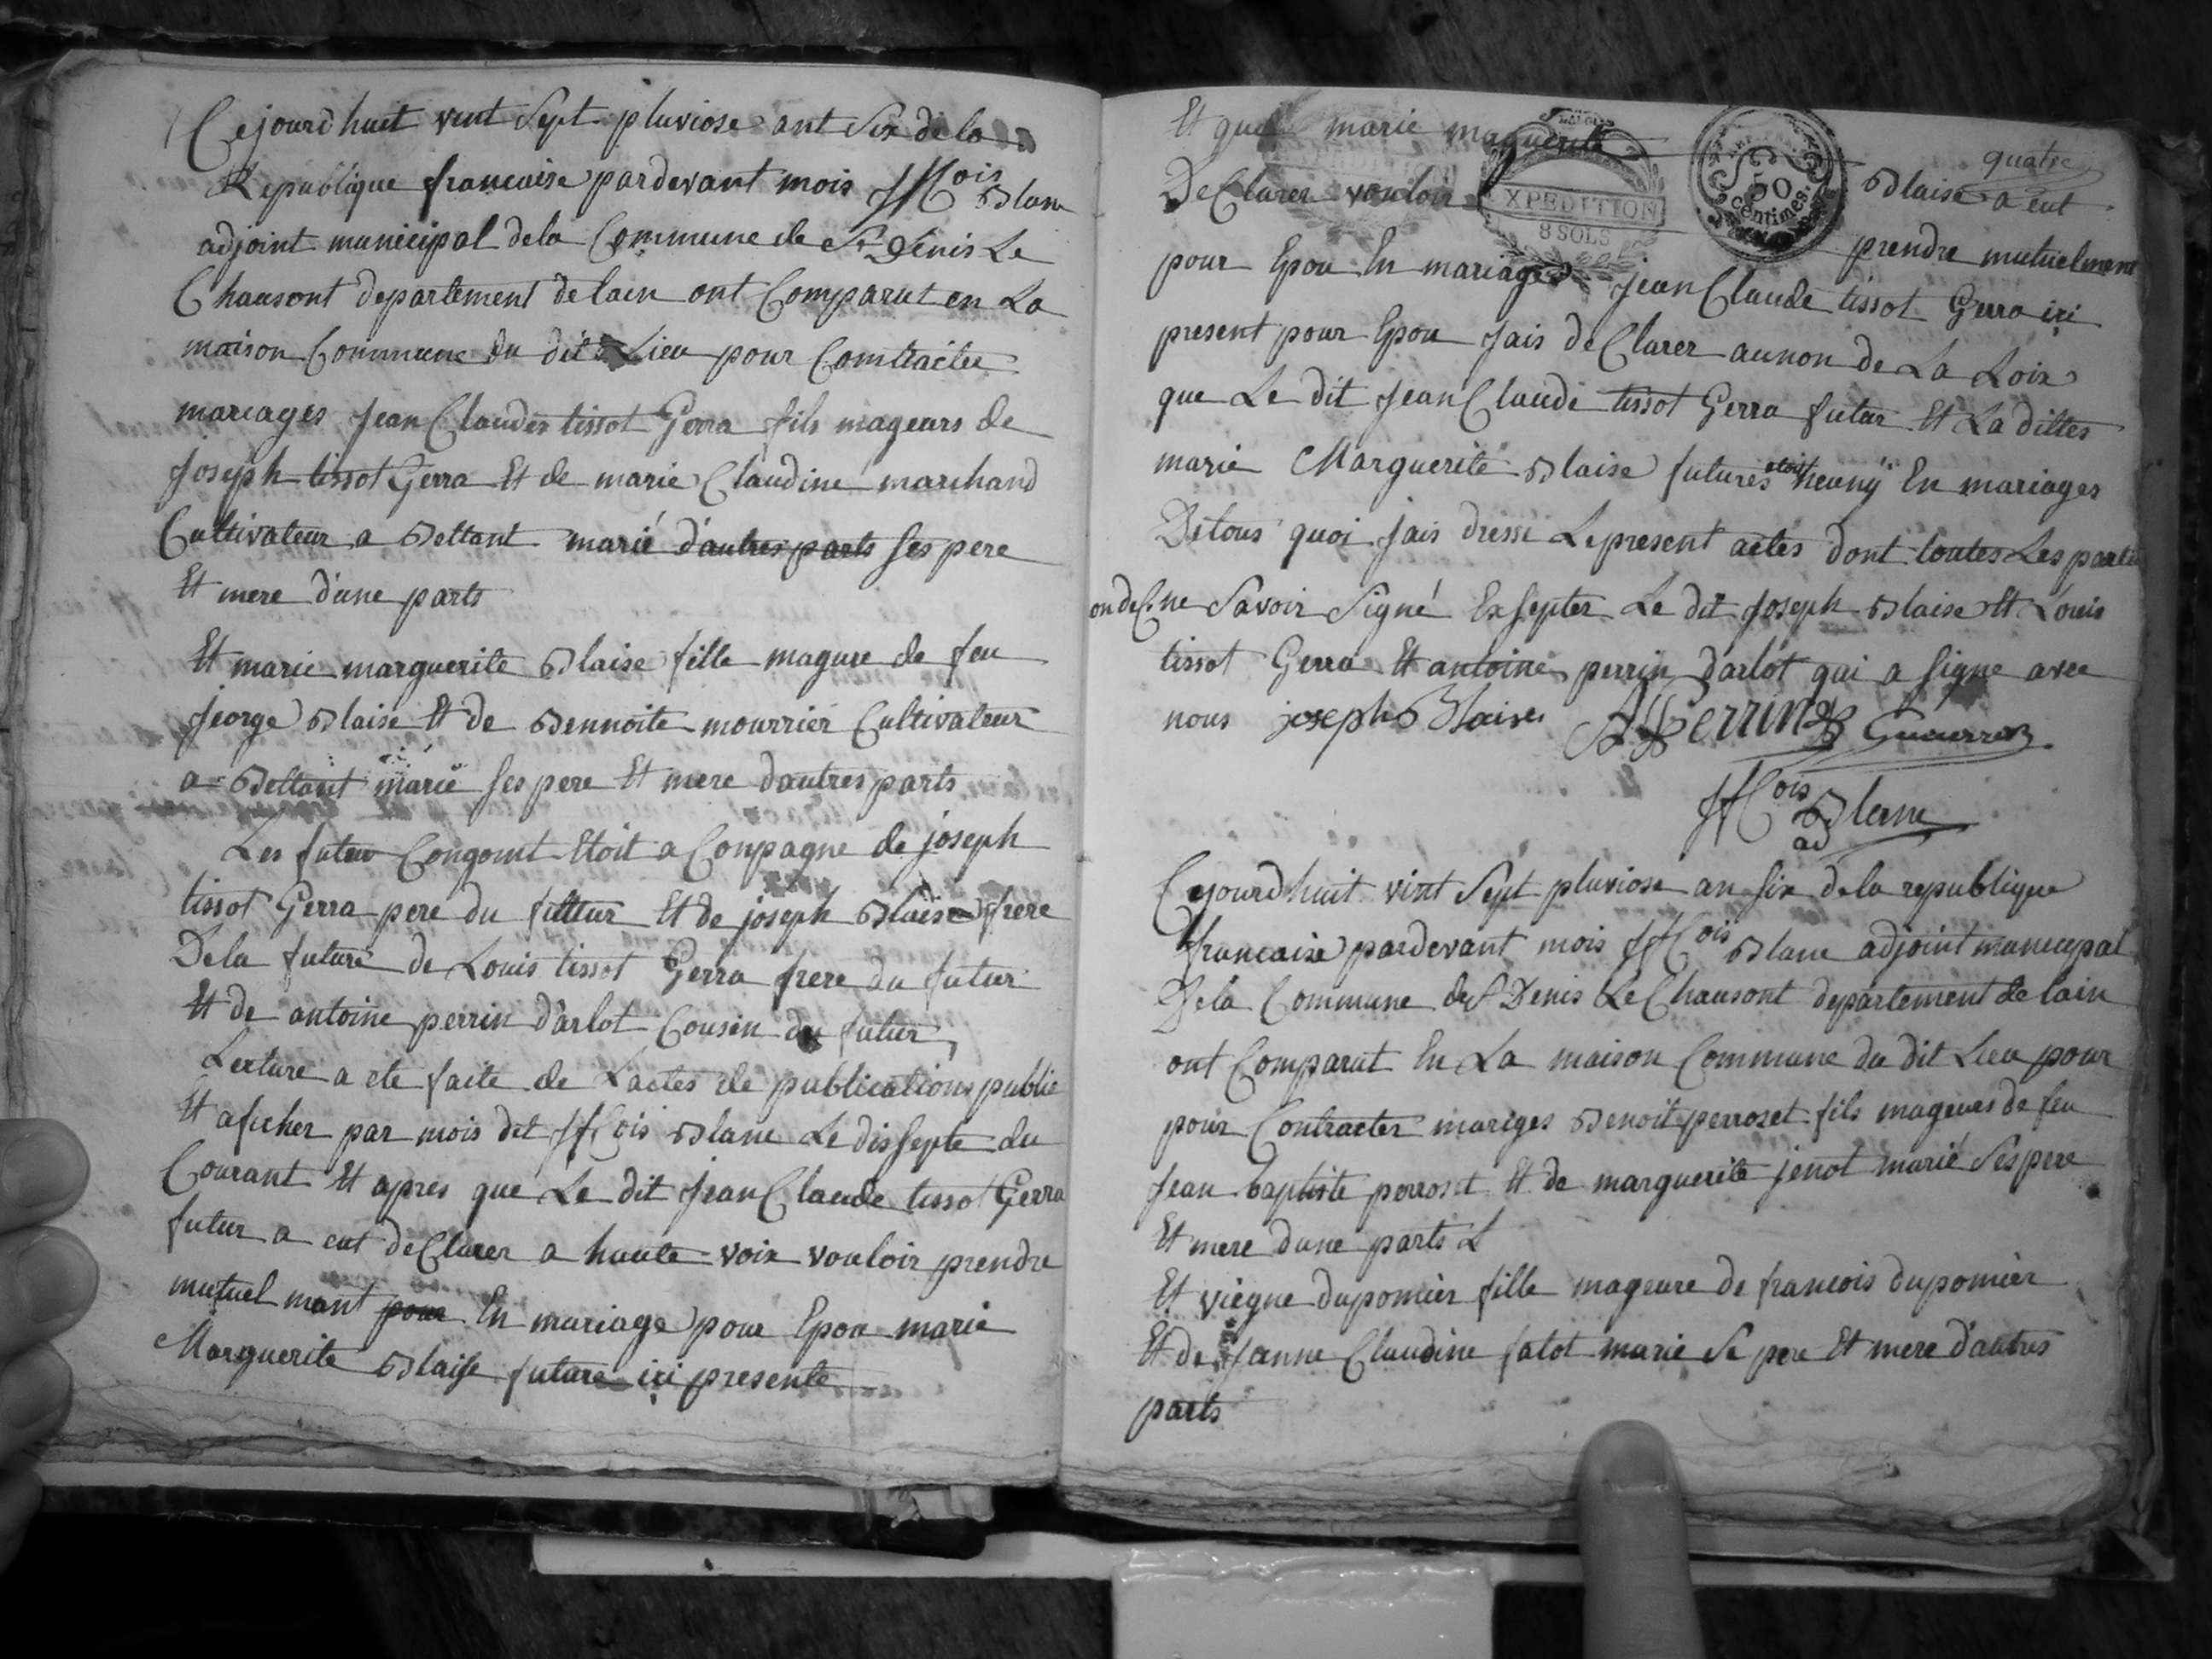 Cejourdhuit vint Sept pluviose ant Six de la
Republique francaise pardevant mois ffCois Blanc
adjoint municipal dela Commune de St Denis Le
Chausont departement de lain ont Comparut en La
maison Commune du dit Lieu pour Comtracter
mariages jean Claudes tissot Gerra fils mageurs de
Joseph tissot Gerra Et de marie Claudine marchand
Cultivateur a Bettant marié d'autres parts ses pere
Et mere d'une parts
Et marie marguerite Blaise fille magure de feu
jeorge Blaise Et de Bennoite mourrier Cultivateur
a Bettant marié ses pere Et mere dautres parts
Les futur Congoint Etoit a Conpagne de joseph
tissot Gerra pere du futtur Et de joseph Blaise frere
Dela future de Louis tissot Gerra frere du futur
Et de antoine perrin d'arlot Cousin du futur
Lecture a ete faite de Lactes de publications publie
Et aficher par mois dit ffCois Blanc Le dissepte du
Courant Et apres que Le dit jean Claude tissot Gerra
futur a eut deClarer a haute voix vouloir prendre
mutuel mant pour En mariage pour Epou marie
Marguerite Blaise future ici presente
quatre
Et que marie marguerite Blaise a eut
DeClarer vouloir prendre mutuelment
EXPEDITION
8 SOLS
50
centimes.
pour Epou En mariages jean Claude tissot Gerra ici
present pour Epou jais deClarer aunon de La Loix
que Le dit jean Claude tissot Gerra futur Et La dittes
marie Marguerite Blaise futures etoit heuny En mariages
De tous quoi jais dressé Le present actes dont toutes Les partie
ondeC ne Savoir Signé Exsepter Le dit joseph Blaise Et Louis
tissot Gerra Et antoine perrin d'arlot qui a signe avec
nous joseph Blaise APerrin
ffCois Blanc
ad
Cejourdhuit vint Sept pluviose an six dela republique
francaise pardevant mois ffCois Blanc adjoint municipal
Dela Commune de St Denis Le Chausont departement de lain
ont Comparut En La maison Commune du dit Lieu pour
pour Contracter mariges Benoit perroset fils mageurs de feu
jean baptiste perroset Et de marguerite jenot marié Ses pere
Et mere dune parts
Et viegne dupomier fille mageure de francois dupomier
Et de janne Claudine falot marie Se pere Et mere d'autres
parts